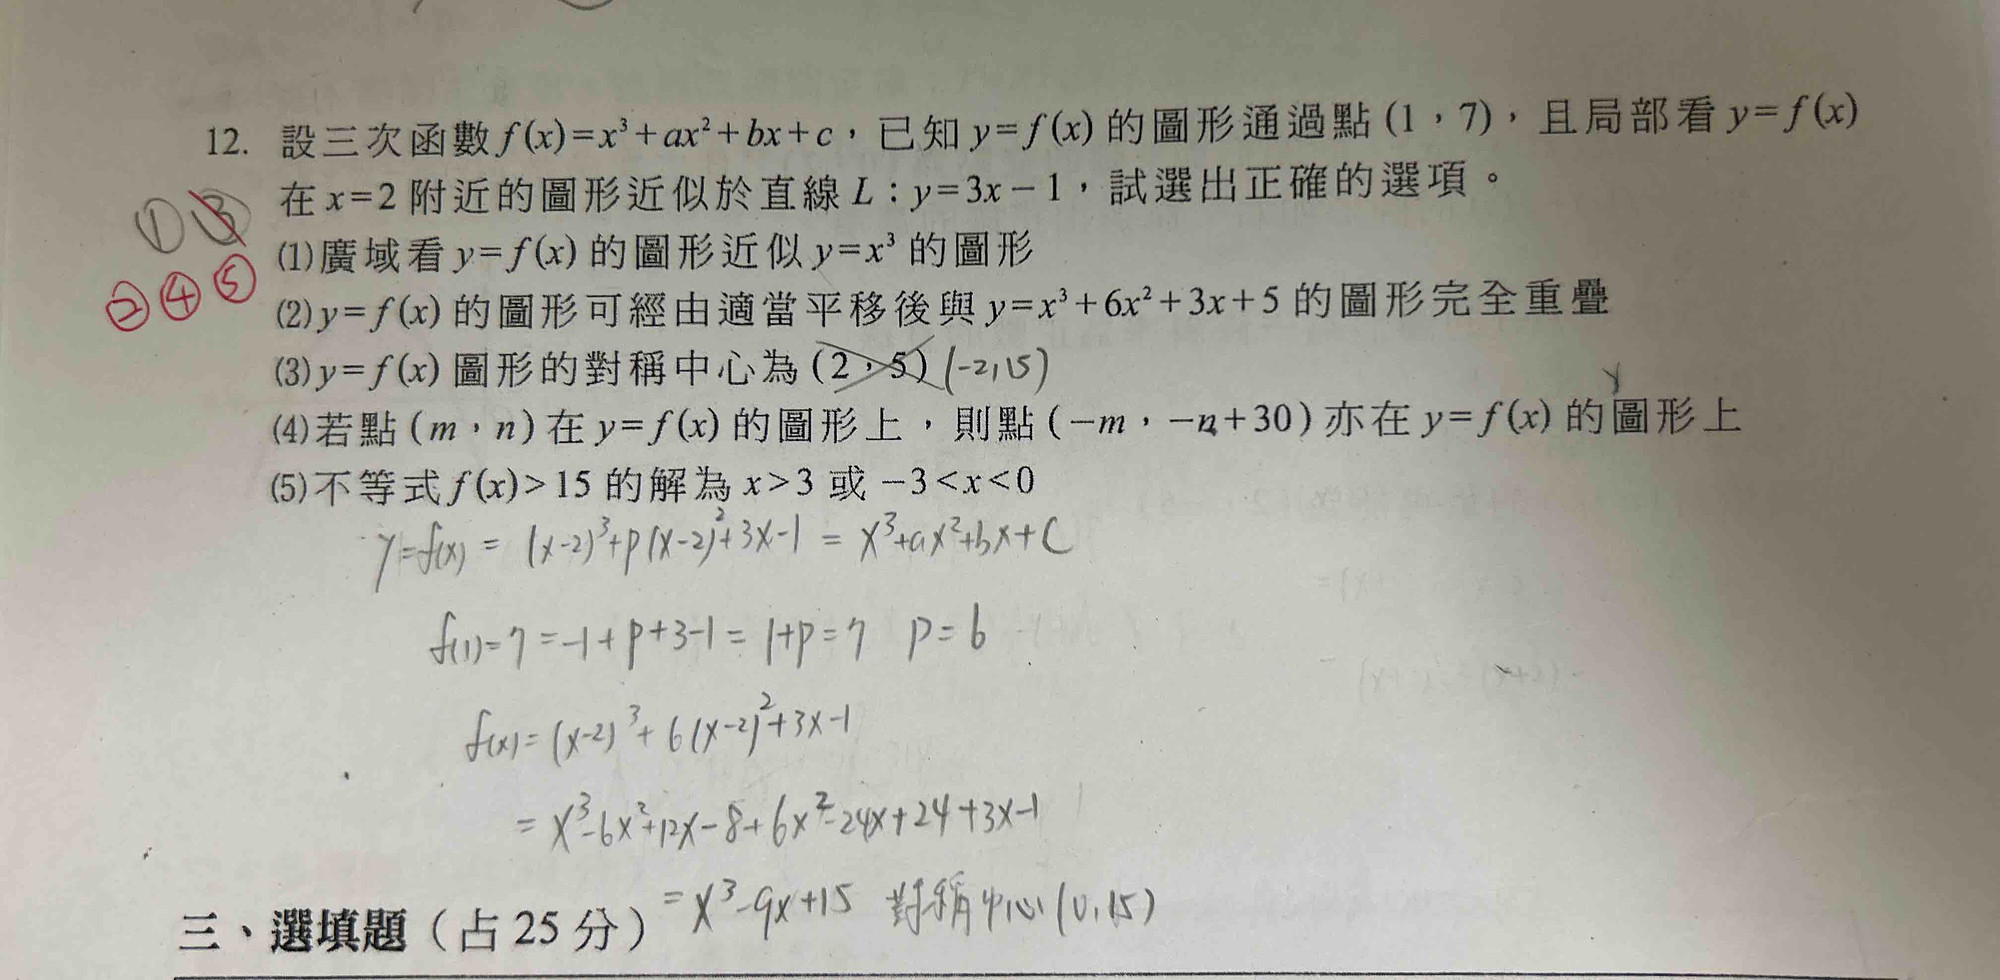 12. 設三次函數 f(x)=x³+ax²+bx+c，已知 y=f(x) 的圖形通過點 (1，7)，且局部看 y=f(x)
在 x=2 附近的圖形近似於直線 L：y=3x－1，試選出正確的選項。
① ③
(1)廣域看 y=f(x) 的圖形近似 y=x³ 的圖形
② ④ ⑤
(2) y=f(x) 的圖形可經由適當平移後與 y=x³+6x²+3x+5 的圖形完全重疊
(3) y=f(x) 圖形的對稱中心為 (2，5) (-2,15)
(4)若點 (m，n) 在 y=f(x) 的圖形上，則點 (－m，－n+30) 亦在 y=f(x) 的圖形上
(5)不等式 f(x)>15 的解為 x>3 或 －3<x<0
y=f(x) = (x-2)³+p(x-2)²+3x-1 = x³+ax²+bx+c
f(1)=7=-1+p+3-1=1+p=7 p=6
f(x)=(x-2)³+6(x-2)²+3x-1
=x³-6x²+12x-8+6x²-24x+24+3x-1
=x³-9x+15 對稱中心(0,15)
三、選填題（占 25 分）